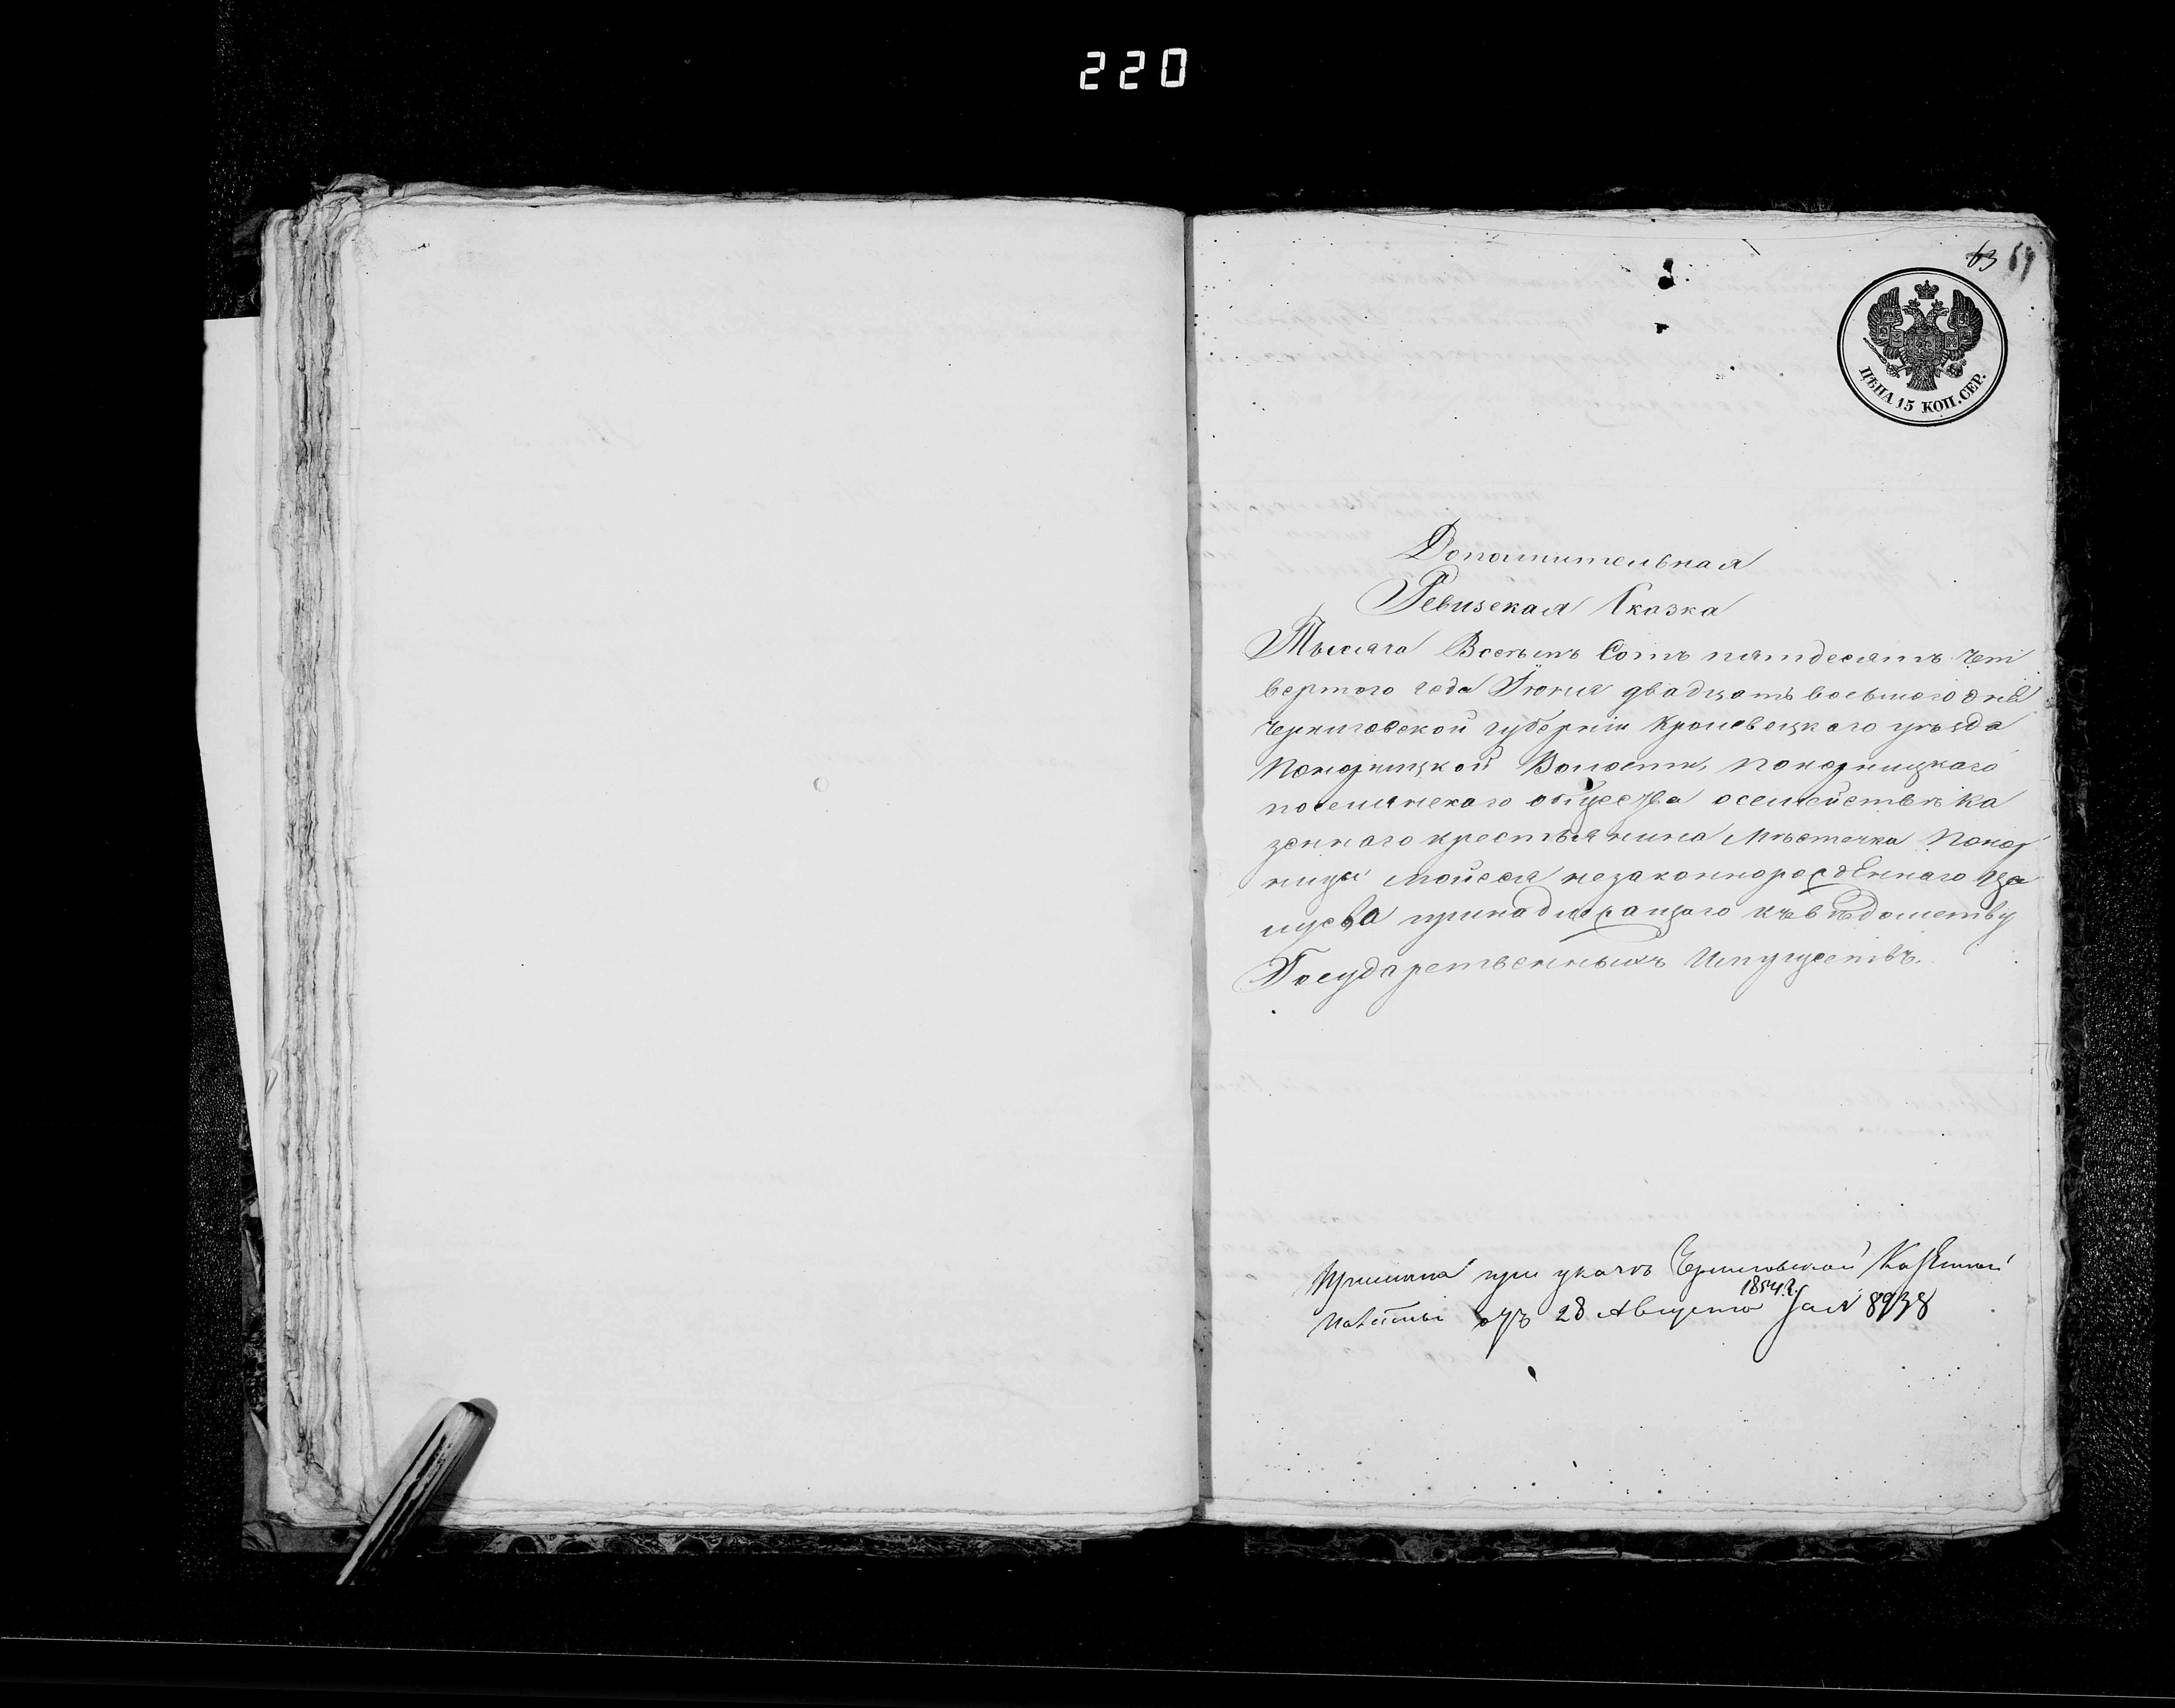 220
63 69
ЦѢНА 15 КОП. СЕР.
Дополнительная
Ревизская Сказка
Тысяча Восемь Сотъ пятдесятъ чет
вертого года Іюня двадцать восьмого дня
Черниговской губерніи Кролевецкого уѣзда
Понорницкой Волости, Понорницкаго
поселянскаго общества осемействѣ Ка
зеннаго крестьянина Мѣстечка Понор
ницы Мойсея незаконнорожденнаго
принадлежащаго къ вѣдомству
Государственныхъ Имуществъ.
при указѣ Черниговской Казенной
Палаты отъ 28 Августа 1854 г. за № 8938